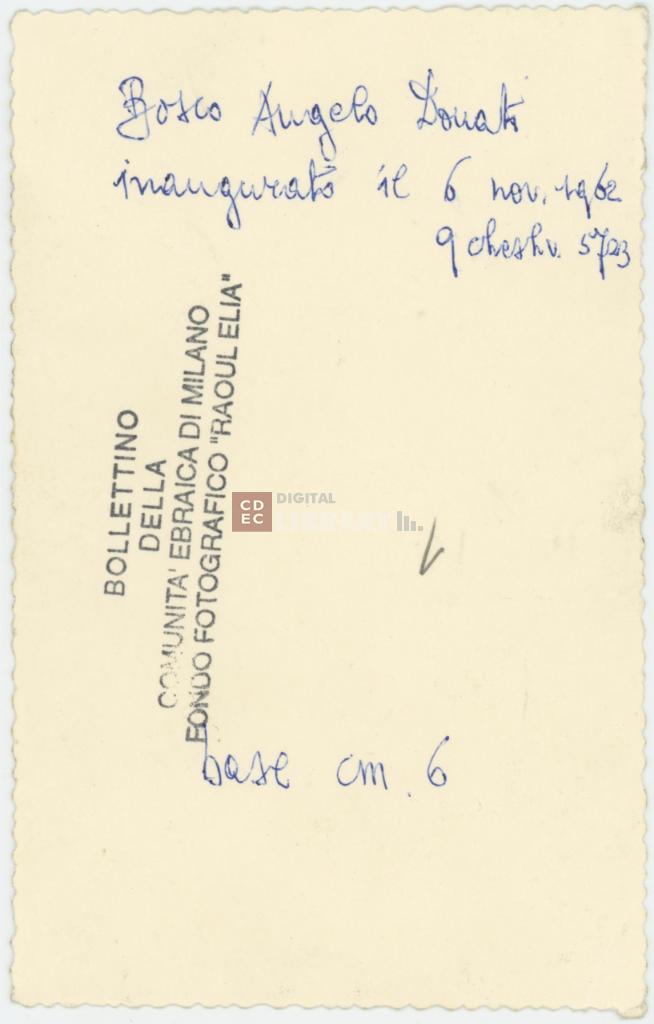 Bosco Angelo Donati
inaugurato il 6 nov. 1962
9 cheshv. 5723
BOLLETTINO
DELLA
COMUNITA' EBRAICA DI MILANO
FONDO FOTOGRAFICO "RAOUL ELIA"
CDEC DIGITAL LIBRARY
base cm. 6